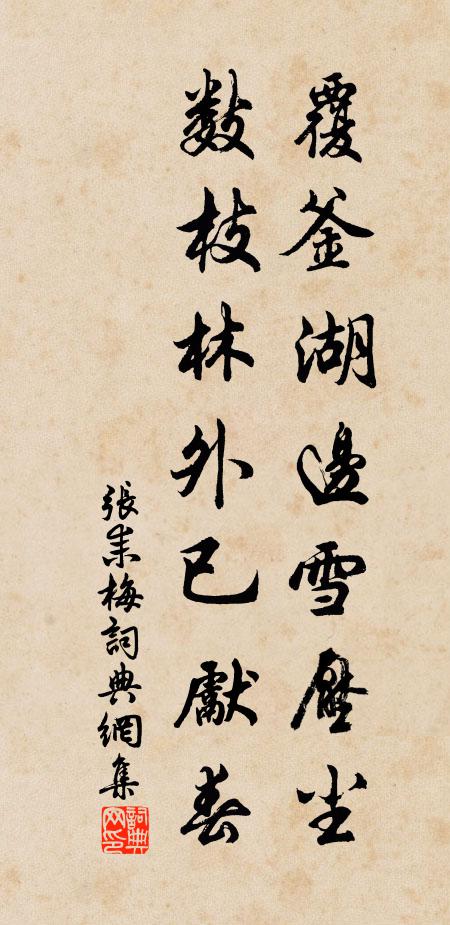 覆釜湖邊雪壓尘
數枝林外已獻春
張耒梅詞典網集
詞典网印